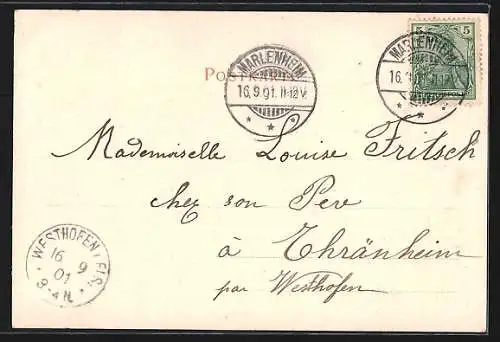 5 5
MARLENHEIM
16.9.01. 11-12V.
MARLENHEIM
Postkarte
Mademoiselle Louise Fritsch
chez son Père
à Thränheim
par Westhofen
WESTHOFEN (ELS.)
16 9
01
3-4N.